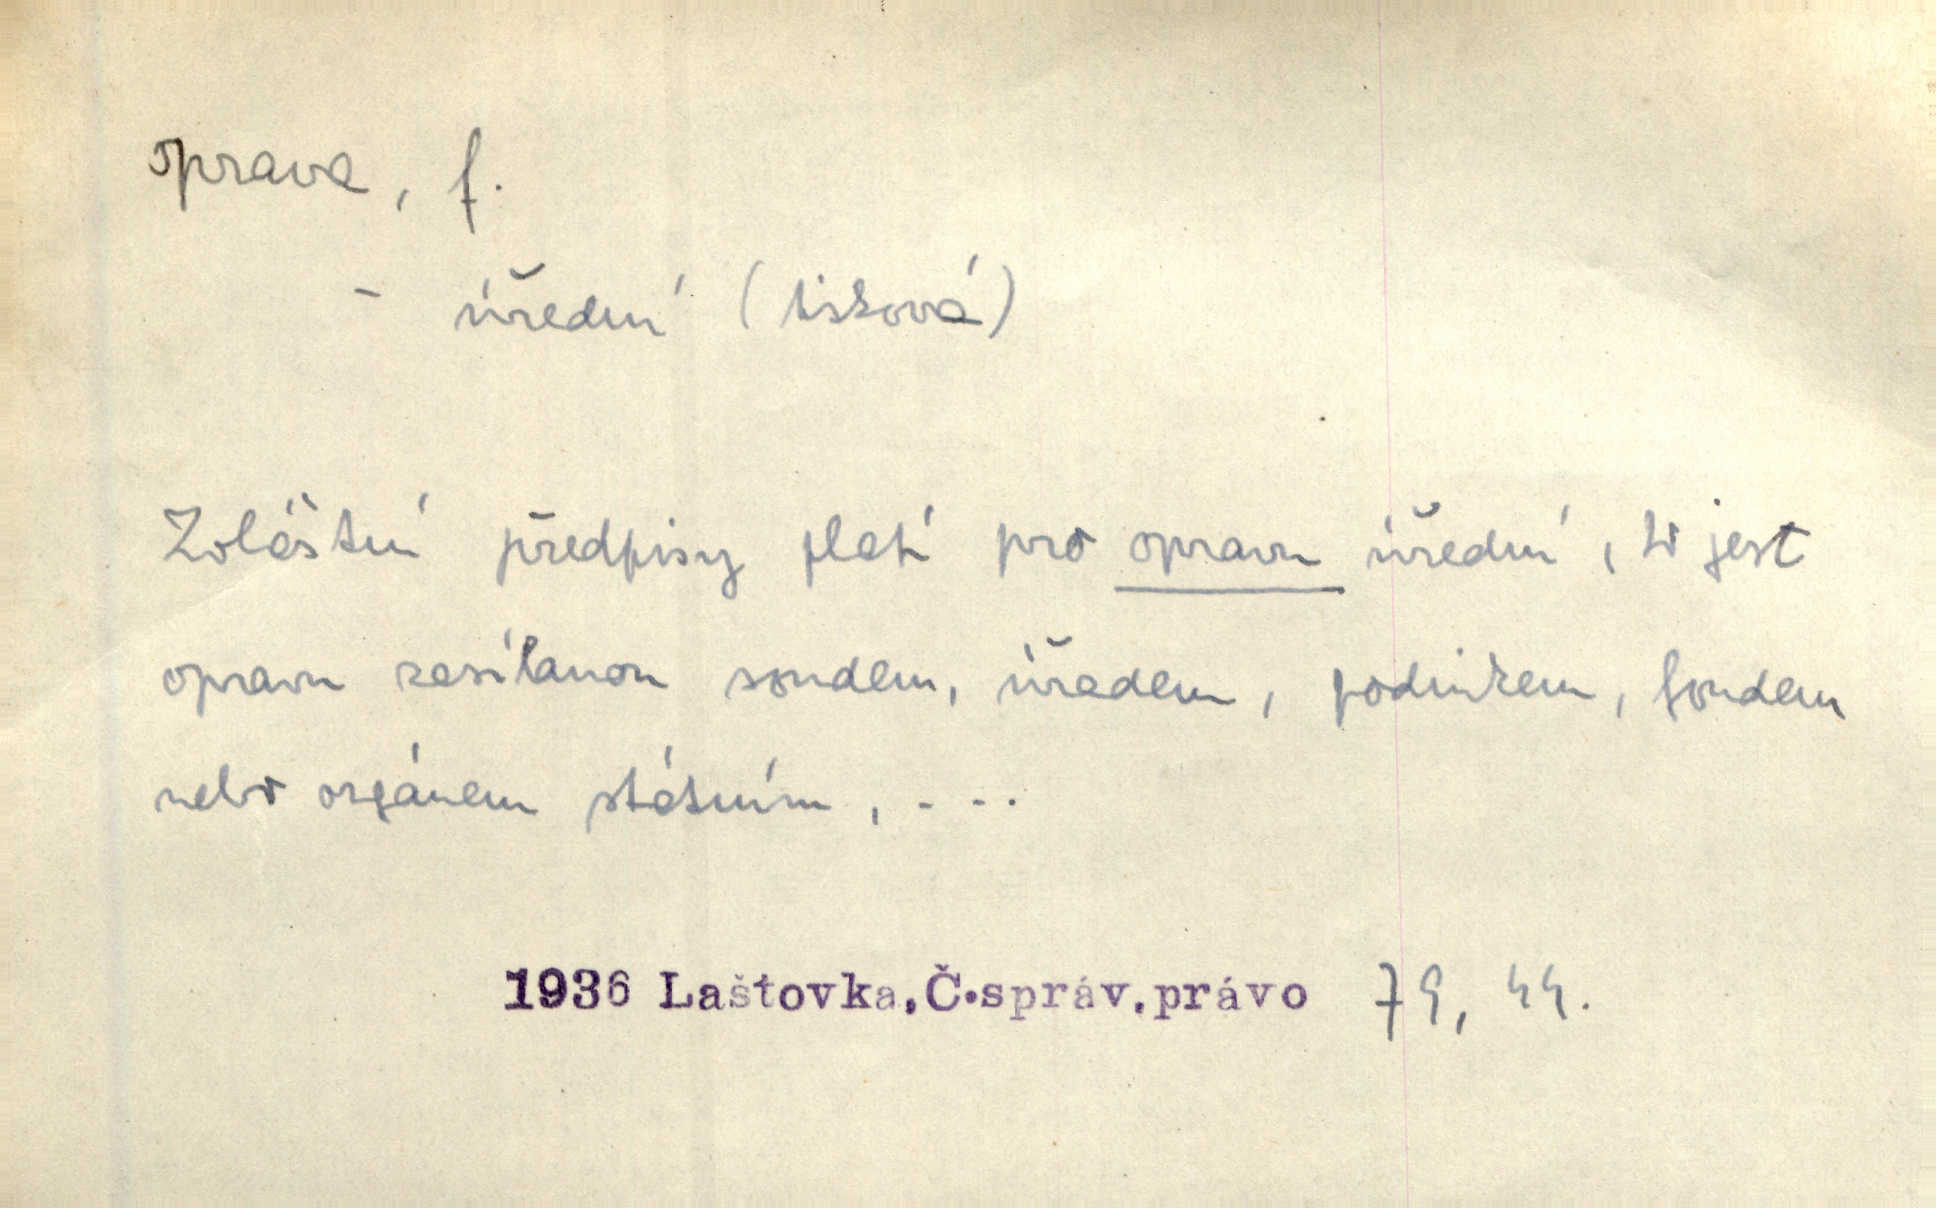 oprava, f.
- úřední (tisková)
Zvláštní předpisy platí pro opravu úřední, to jest
opravu zasílanou soudem, úřadem, podnikem, fondem
nebo orgánem státním, ...
1936 Laštovka,Č.správ.právo 79, 44.